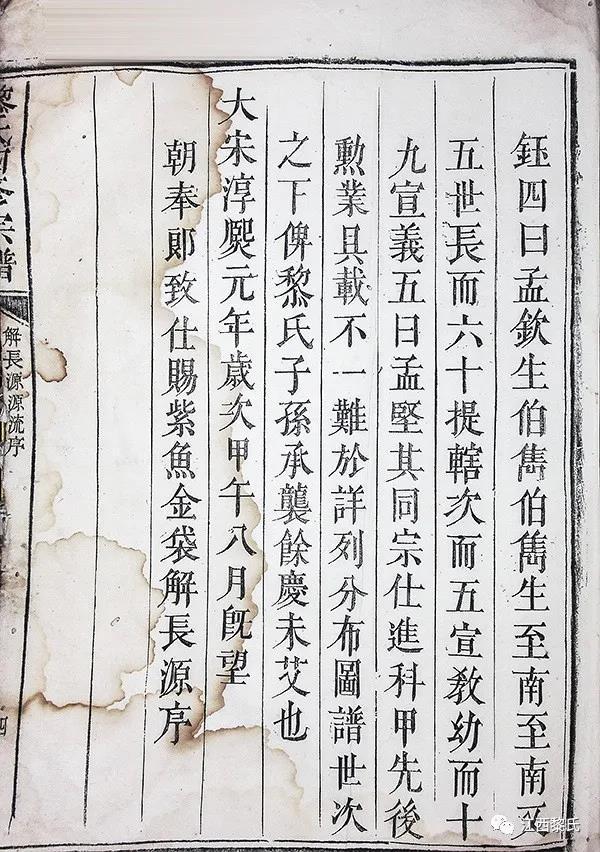 鈺四曰孟欽生伯雋伯雋生至南至南又
五世長而六十提轄次而五宣教幼而十
九宣義五曰孟堅其同宗仕進科甲先後
勲業具載不一難於詳列分布圖譜世次
之下俾黎氏子孫承襲餘慶未艾也
大宋淳熈元年歲次甲午八月旣望
朝奉郎致仕賜紫魚金袋解長源序
宗譜
解長源源流序
四
江西黎氏